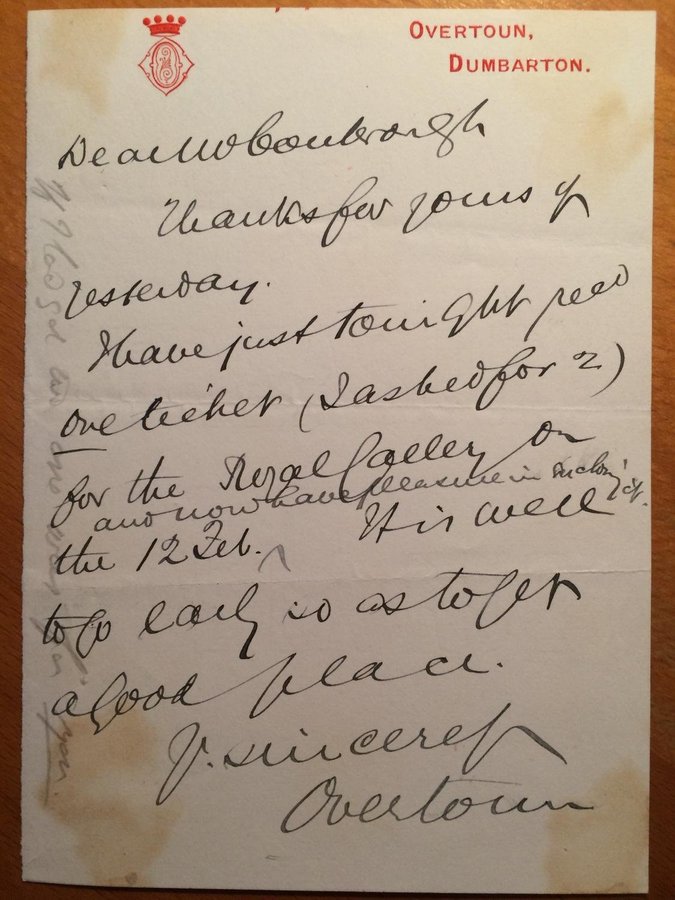 OVERTOUN,
DUMBARTON.
Dear
Thanks for yours of
yesterday.
I have just tonight recd
one ticket (I asked for 2)
for the Royal Gallery on
and now have pleasure in enclosing it.
the 12 Feb. ^ It is well
to go early so as to get
a good place.
Y. sincerely
Overtoun
If I get an one way for you.